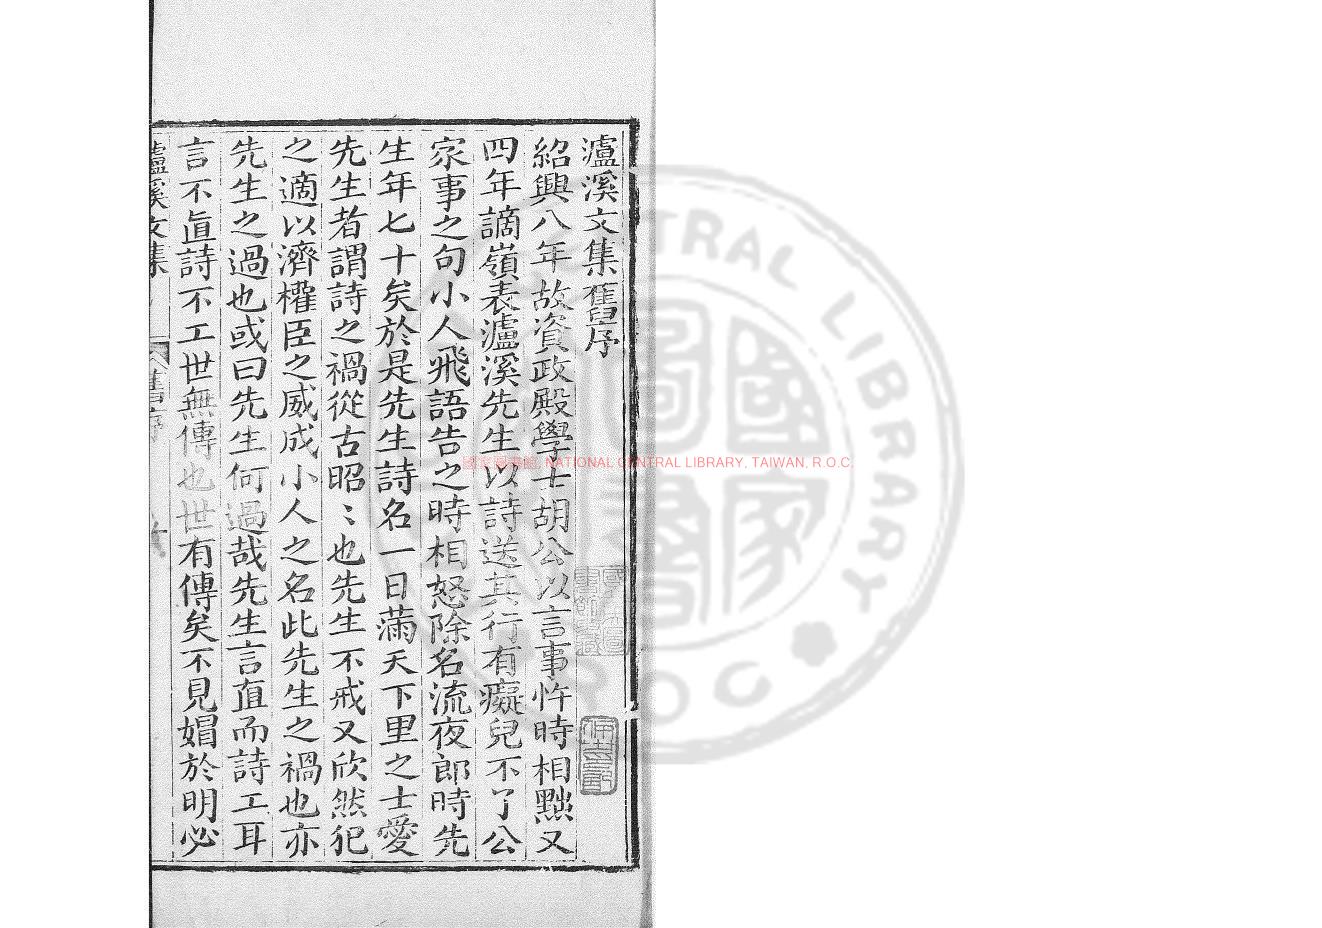 瀘溪文集舊序
紹興八年故資政殿學士胡公以言事忤時相黜又
四年謫嶺表瀘溪先生以詩送其行有癡兒不了公
家事之句小人飛語告之時相怒除名流夜郎時先
生年七十矣於是先生詩名一日滿天下里之士愛
先生者謂詩之禍從古昭〻也先生不戒又欣然犯
之適以濟權臣之威成小人之名此先生之禍也亦
先生之過也或曰先生何過哉先生言直而詩工耳
言不直詩不工世無傳也世有傳矣不見媢於明必
瀘溪文集
舊序
國家圖書館, NATIONAL CENTRAL LIBRARY, TAIWAN, R.O.C.
CENTRAL LIBRARY
R.O.C